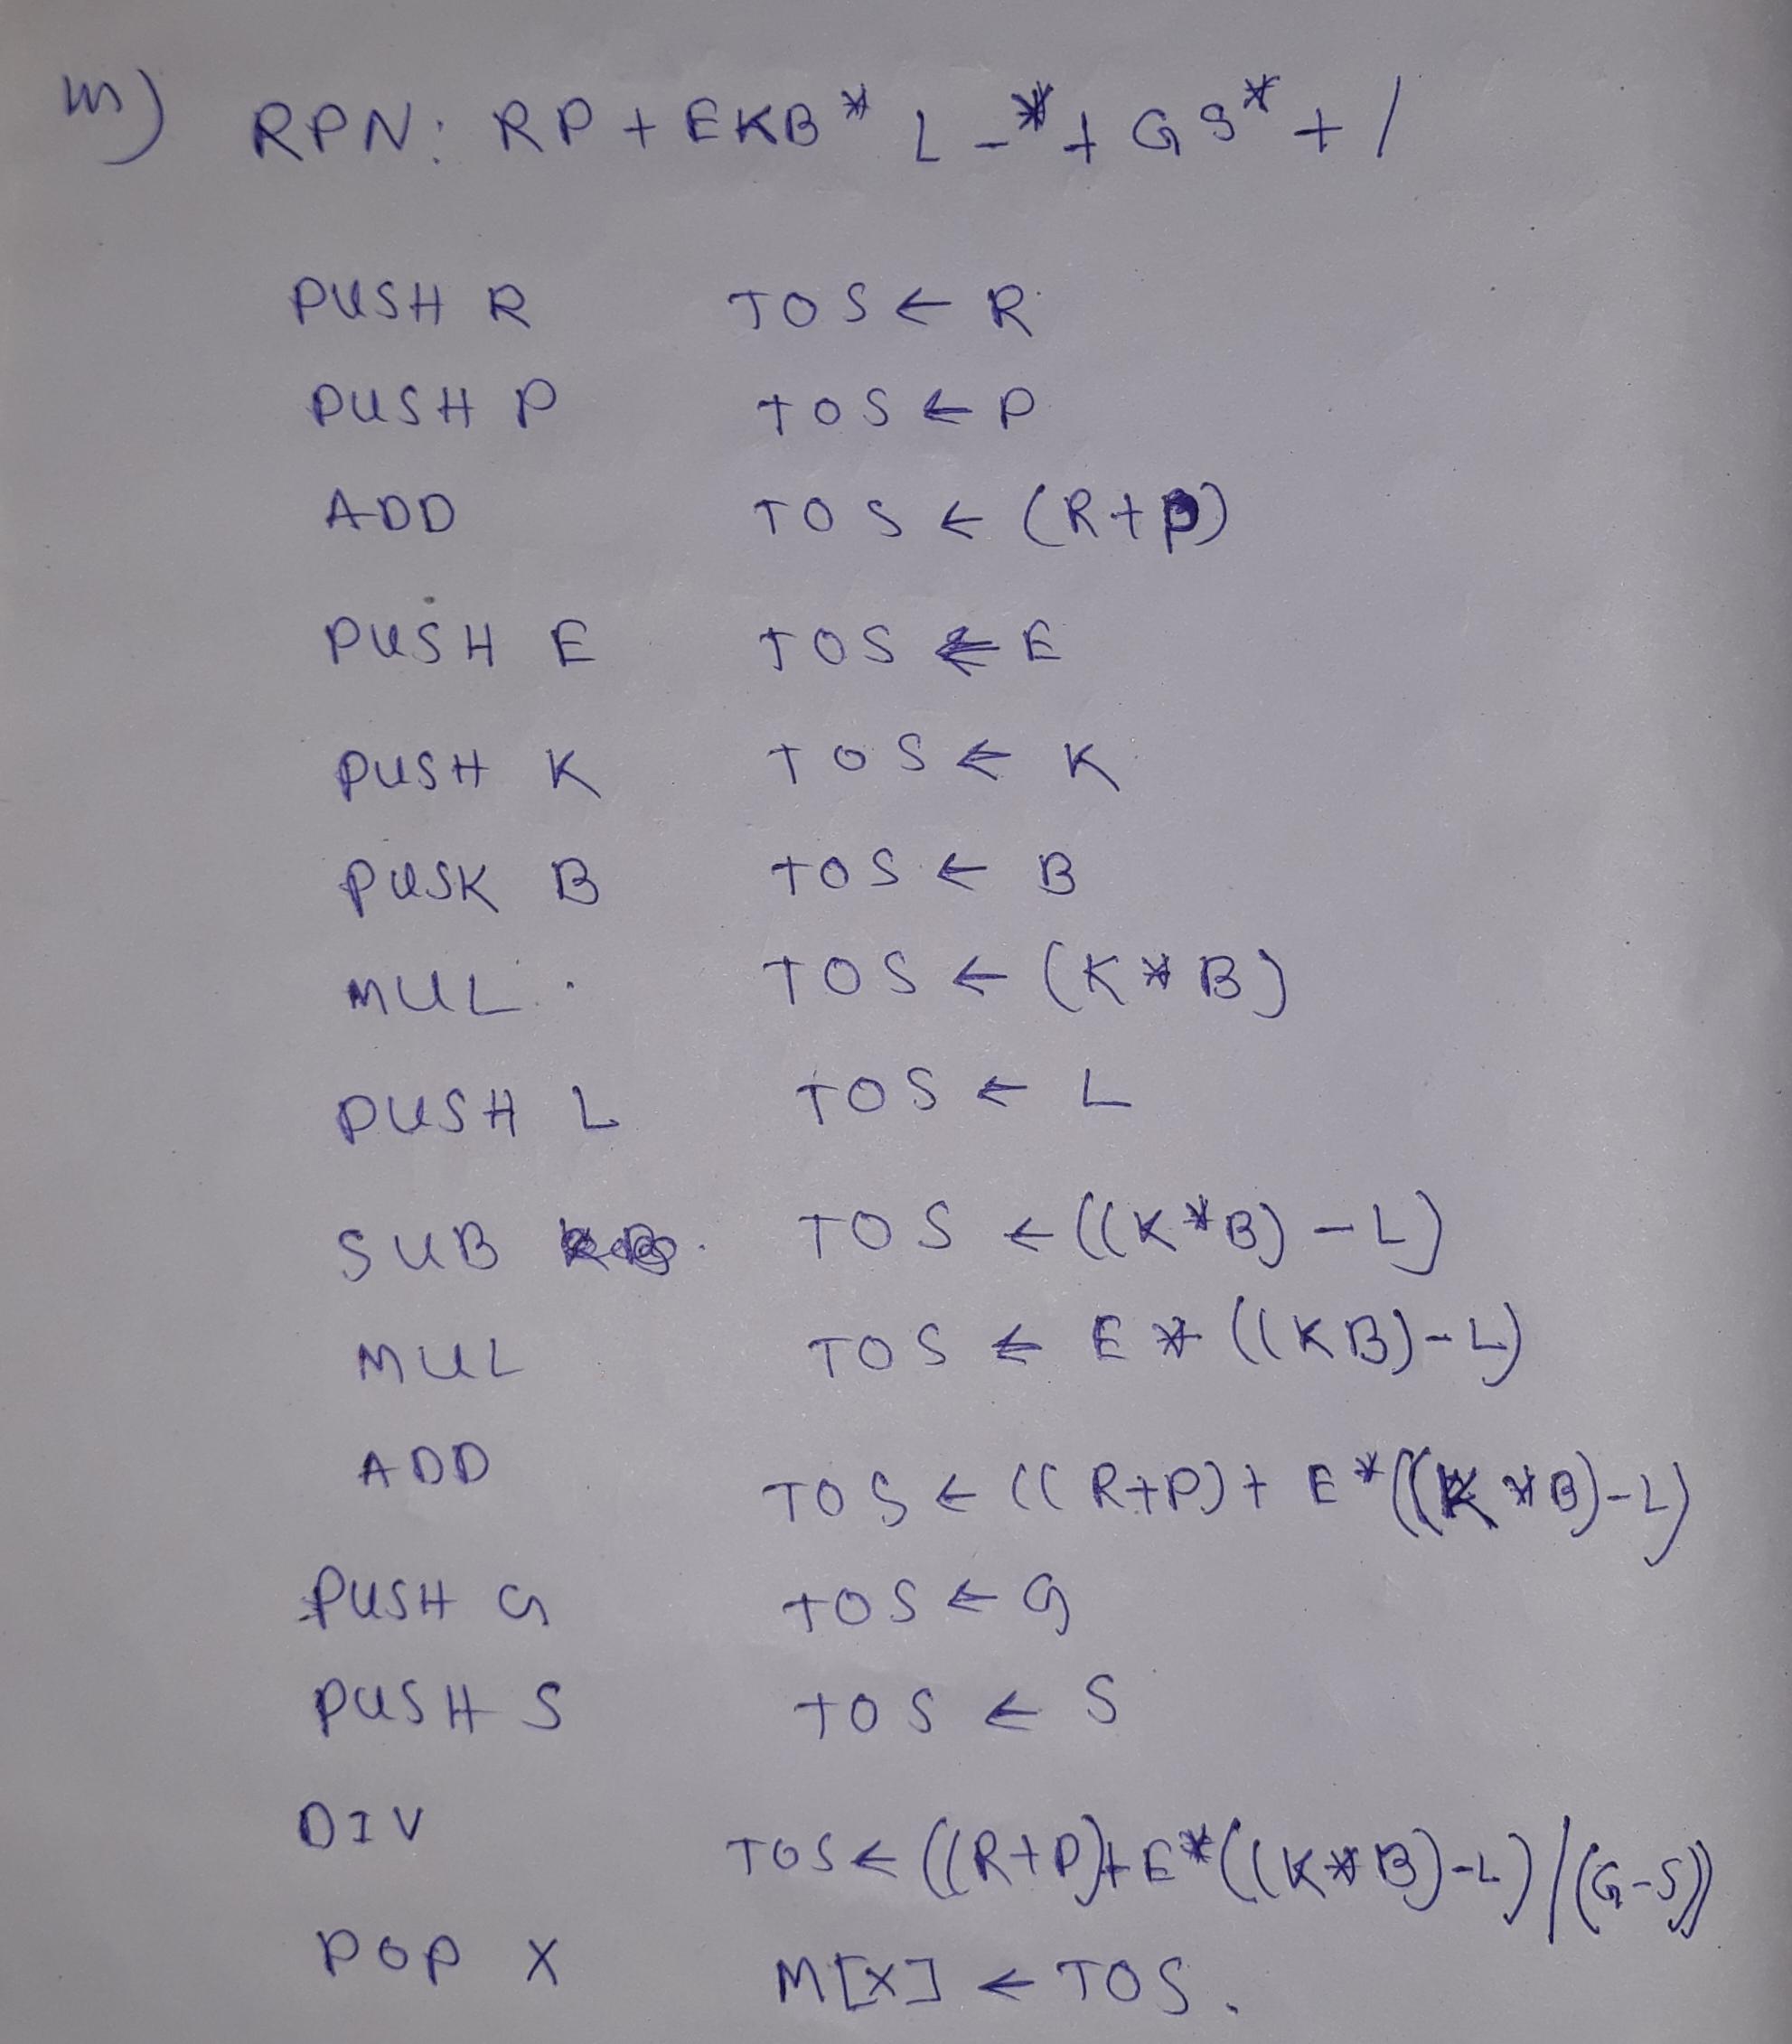 m) RPN: RP+EKB* L-*+GS*+/
PUSH R TOS ← R
PUSH P TOS ← P
ADD TOS ← (R+P)
PUSH E TOS ← E
PUSH K TOS ← K
PUSK B TOS ← B
MUL. TOS ← (K*B)
PUSH L TOS ← L
SUB TOS ← ((K*B)-L)
MUL TOS ← E*((KB)-L)
ADD TOS ← ((R+P)+E*((K*B)-L)
PUSH G TOS ← G
PUSH S TOS ← S
DIV TOS ← ((R+P)+E*((K*B)-L)/(G-S))
POP X M[X] ← TOS.